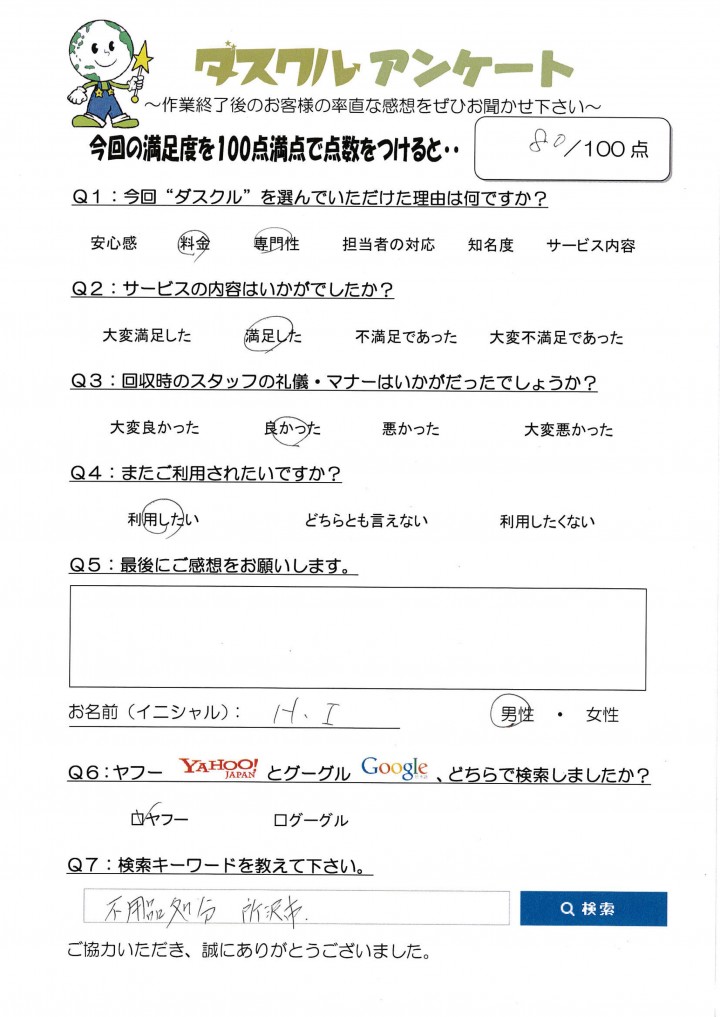 ダスクルアンケート
～作業終了後のお客様の率直な感想をぜひお聞かせ下さい～
今回の満足度を100点満点で点数をつけると・・ 80/100点
Q1：今回“ダスクル”を選んでいただけた理由は何ですか？
安心感 料金 専門性 担当者の対応 知名度 サービス内容
Q2：サービスの内容はいかがでしたか？
大変満足した 満足した 不満足であった 大変不満足であった
Q3：回収時のスタッフの礼儀・マナーはいかがだったでしょうか？
大変良かった 良かった 悪かった 大変悪かった
Q4：またご利用されたいですか？
利用したい どちらとも言えない 利用したくない
Q5：最後にご感想をお願いします。
お名前（イニシャル）： H.I 男性 ・ 女性
Q6：ヤフー YAHOO! JAPAN とグーグル Google 、どちらで検索しましたか？
□ヤフー □グーグル
Q7：検索キーワードを教えて下さい。
不用品処分 所沢市. 検索
ご協力いただき、誠にありがとうございました。